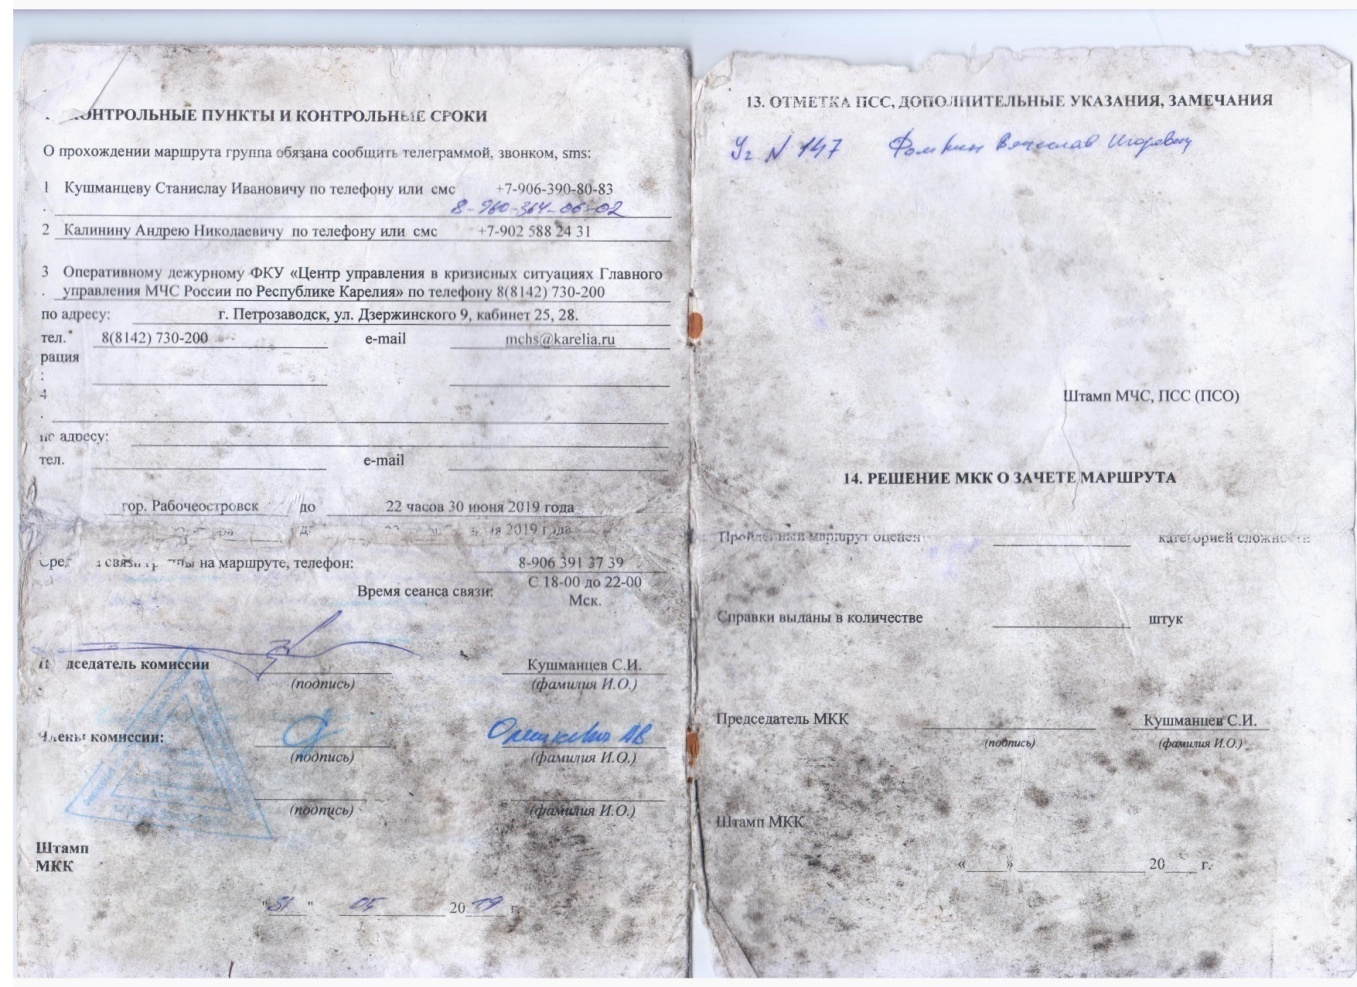 КОНТРОЛЬНЫЕ ПУНКТЫ И КОНТРОЛЬНЫЕ СРОКИ
О прохождении маршрута группа обязана сообщить телеграммой, звонком, sms:
1 Кушманцеву Станислау Ивановичу по телефону или смс +7-906-390-80-83
. 8-960-364-06-02
2 Калинину Андрею Николаевичу по телефону или смс +7-902 588 24 31
3 Оперативному дежурному ФКУ «Центр управления в кризисных ситуациях Главного
. управления МЧС России по Республике Карелия» по телефону 8(8142) 730-200
по адресу: г. Петрозаводск, ул. Дзержинского 9, кабинет 25, 28.
тел. 8(8142) 730-200 e-mail mchs@karelia.ru
рация
:
4
.
по адресу:
тел. e-mail
гор. Рабочеостровск до 22 часов 30 июня 2019 года
2019 года
на маршруте, телефон: 8-906 391 37 39
Время сеанса связи: С 18-00 до 22-00
Мск.
дседатель комиссии Кушманцев С.И.
(подпись) (фамилия И.О.)
Члены комиссии:
(подпись) (фамилия И.О.)
(подпись) (фамилия И.О.)
Штамп
МКК
"31" 05 2019 г.
13. ОТМЕТКА ПСС, ДОПОЛНИТЕЛЬНЫЕ УКАЗАНИЯ, ЗАМЕЧАНИЯ
N 147 Фомкин Вячеслав Игоревич
Штамп МЧС, ПСС (ПСО)
14. РЕШЕНИЕ МКК О ЗАЧЕТЕ МАРШРУТА
Пройденный маршрут оценен категорией сложности
Справки выданы в количестве штук
Председатель МКК Кушманцев С.И.
(подпись) (фамилия И.О.)
Штамп МКК
«____» ____________ 20___ г.